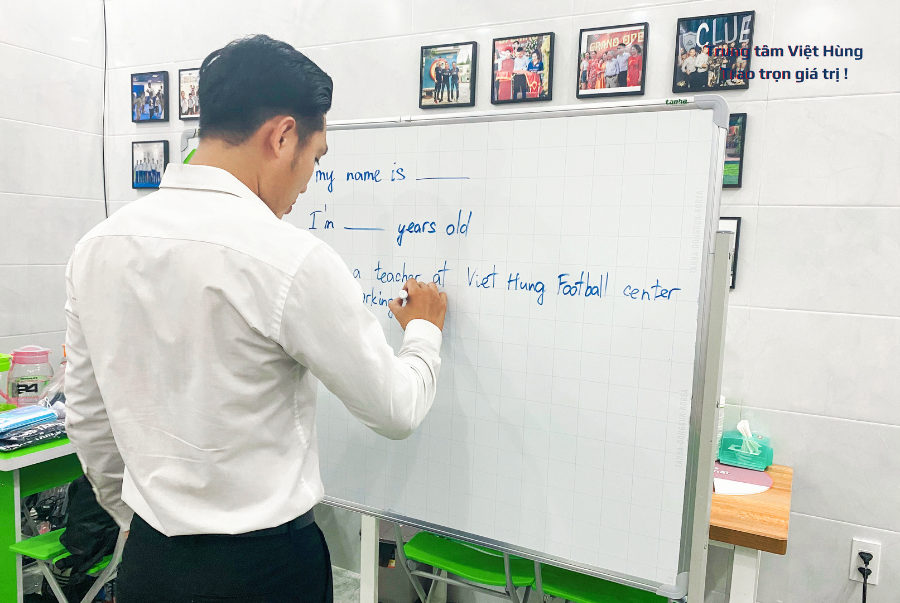 Trung tâm Việt Hùng
Trao trọn giá trị !
GRAND OPE
CLUB
my name is
I'm ___ years old
a teacher at Việt Hung Football center
arking